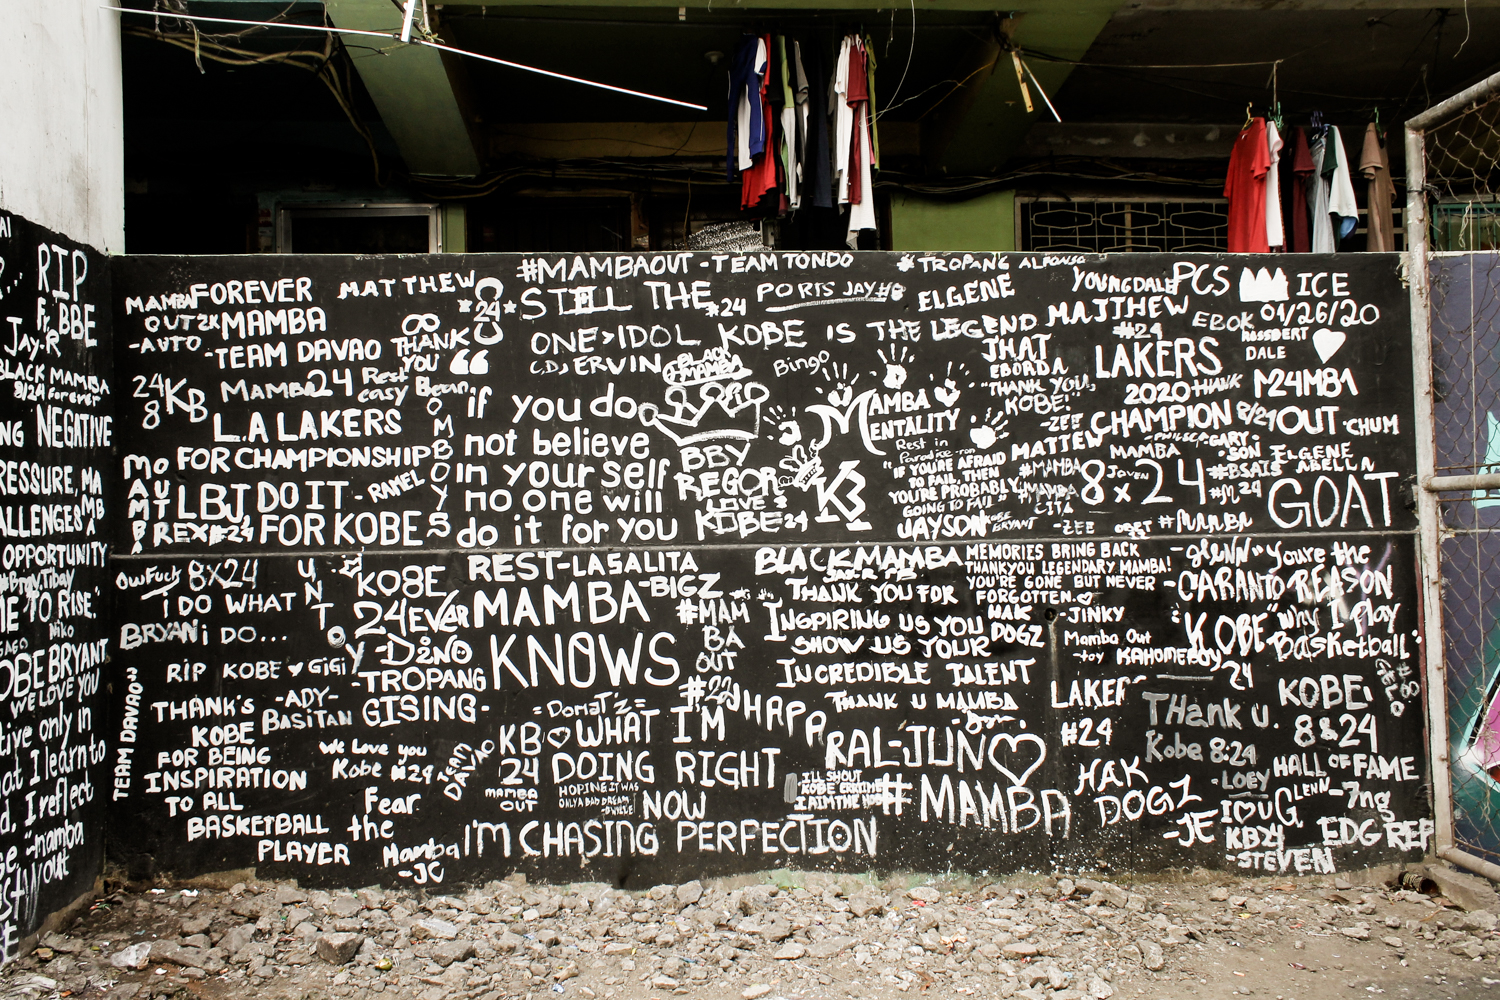 RIP
BBE
Jay.R
BLACK MAMBA
8/24 forever
NEGATIVE
PRESSURE, MA
MB
A
OPPORTUNITY
TO RISE."
Niko
KOBE BRYANT
WE LOVE YOU
only in
I learn to
I reflect
"mamba
out
TEAM DAVAO
MAMBA
OUT 2K
-AUTO
FOREVER
MAMBA
-TEAM DAVAO
MATTHEW
THANK
YOU
*24*
#MAMBAOUT - TEAM TONDO
STILL THE
#24
PORIS JAY #8
# TROPANG ALFONSO
ELGENE
ONE>IDOL KOBE IS THE LEGEND
C.D, ERVIN
BLACK
MAMBA
Bingo
YOUNGDALE
PCS
ICE
MATTHEW
#24
EBOK
01/26/20
ROSSBERT
DALE
LAKERS
2020
THANK
CHAMPION
8/24
M24M8A
OUT
-CHUM
24
8
KB
Mamba24
Rest
easy
L.A LAKERS
FOR CHAMPIONSHIP
LBJ DO IT
-RAMEL
REX#24
FOR KOBE
MAMBA
OUT
BOMBOY
“
if you do
not believe
in your self
no one will
do it for you
BBY
REGOR
LOVE'S
KOBE 24
KB
MAMBA
MENTALITY
Rest in
Paradice -ron
"IF YOU'RE AFRAID
TO FAIL, THEN
YOU'RE PROBABLY
GOING TO FAIL"
KOBE
BRYANT
JAYSON
JHAT
EBORDA
"THANK YOU,
KOBE!"
-ZEE
MATTEW
#MAMBA
#MAMBA
CITA
-ZEE
MAMBA
Joven
8x24
-GARY-
-SON
#BSAIS
#M24
ELGENE
ABELLA
GOAT
#MAMBA
OwFuck 8x24
I DO WHAT
BRYAN i DO...
RIP KOBE ♥ GiGi
UNTOY
KOBE
24EVER
-DiNO
-TROPANG
GISING-
REST-LASALITA
MAMBA
-BIGZ
KNOWS
#MAM
BA
OUT
#22
BLACKMAMBA
THANK YOU FOR
INSPIRING US YOU
SHOW US YOUR
INCREDIBLE TALENT
THANK U MAMBA
MEMORIES BRING BACK
THANKYOU LEGENDARY MAMBA!
YOU'RE GONE BUT NEVER
FORGOTTEN.♡
HAK
DOGZ
-JINKY
Mamba Out
-toy
KAHOMEBOY
-glenn
-CARANTO
"You're the
REASON
"KOBE"
Why I play
Basketball"
24
THANK'S
KOBE
FOR BEING
INSPIRATION
TO ALL
BASKETBALL
PLAYER
-ADY-
BASITAN
We Love you
Kobe #24
TEAM
DAVAO
Fear
the
Mamba
-JC
KB♡
24
MAMBA
OUT
=Domat'z=
WHAT I'M
DOING RIGHT
NOW
I'M CHASING PERFECTION
HOPING IT WAS
ONLY A BAD DREAM
JHAPA
RAL-JUN♡
I'LL SHOUT
#MAMBA
LAKER
#24
HAK
DOGZ
-JE
THank U.
Kobe 8:24
-LOEY
KOBE
8&24
HALL OF FAME
GLENN
-7ng
KB24
-STEVEN
EDG REP